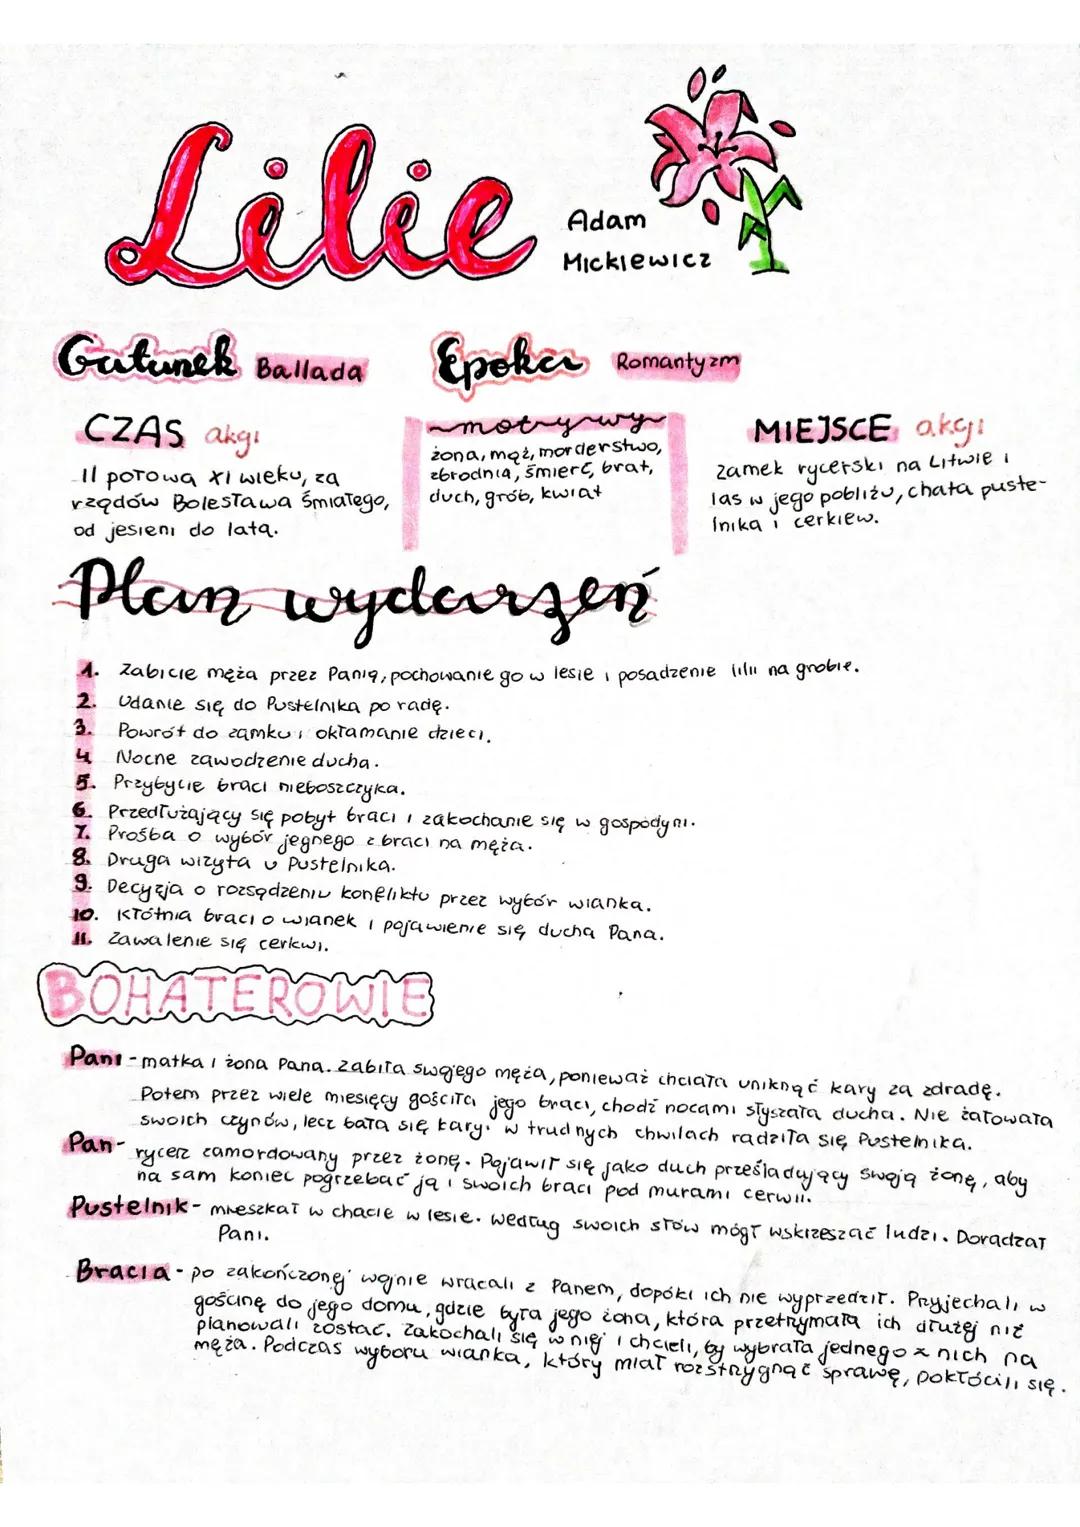 Lilie
Adam
Mickiewicz
Gatunek Ballada
Epoka Romantyzm
CZAS akcji
II połowa XI wieku, za
rządów Bolesława Śmiałego,
od jesieni do lata.
motywy
żona, mąż, morderstwo,
zbrodnia, śmierć, brat,
duch, grób, kwiat
MIEJSCE akcji
Zamek rycerski na Litwie i
las w jego pobliżu, chata puste-
lnika i cerkiew.
Plan wydarzeń
1. Zabicie męża przez Panią, pochowanie go w lesie i posadzenie lilii na grobie.
2. Udanie się do Pustelnika po radę.
3. Powrót do zamku i okłamanie dzieci.
4 Nocne zawodzenie ducha.
5. Przybycie braci nieboszczyka.
6. Przedłużający się pobyt braci i zakochanie się w gospodyni.
7. Prośba o wybór jegnego z braci na męża.
8. Druga wizyta u Pustelnika.
9. Decyzja o rozsądzeniu konfliktu przez wybór wianka.
10. Kłótnia braci o wianek i pojawienie się ducha Pana.
11. Zawalenie się cerkwi.
BOHATEROWIE
Pani - matka i żona Pana. Zabiła swojego męża, ponieważ chciała uniknąć kary za zdradę.
Potem przez wiele miesięcy gościła jego braci, chodź nocami słyszała ducha. Nie żałowała
swoich czynów, lecz bała się kary. W trudnych chwilach radziła się Pustelnika.
Pan - rycerz zamordowany przez żonę. Pojawił się jako duch prześladujący swoją żonę, aby
na sam koniec pogrzebać ją i swoich braci pod murami cerwii.
Pustelnik - mieszkał w chacie w lesie. Według swoich słów mógł wskrzeszać ludzi. Doradzał
Pani.
Bracia - po zakończonej wojnie wracali z Panem, dopóki ich nie wyprzedził. Pryjechali w
gościnę do jego domu, gdzie była jego żona, która przetrzymała ich dłużej niż
planowali zostać. Zakochali się w niej i chcieli, by wybrała jednego z nich na
męża. Podczas wyboru wianka, który miał rozstrzygnąć sprawę, pokłócili się.